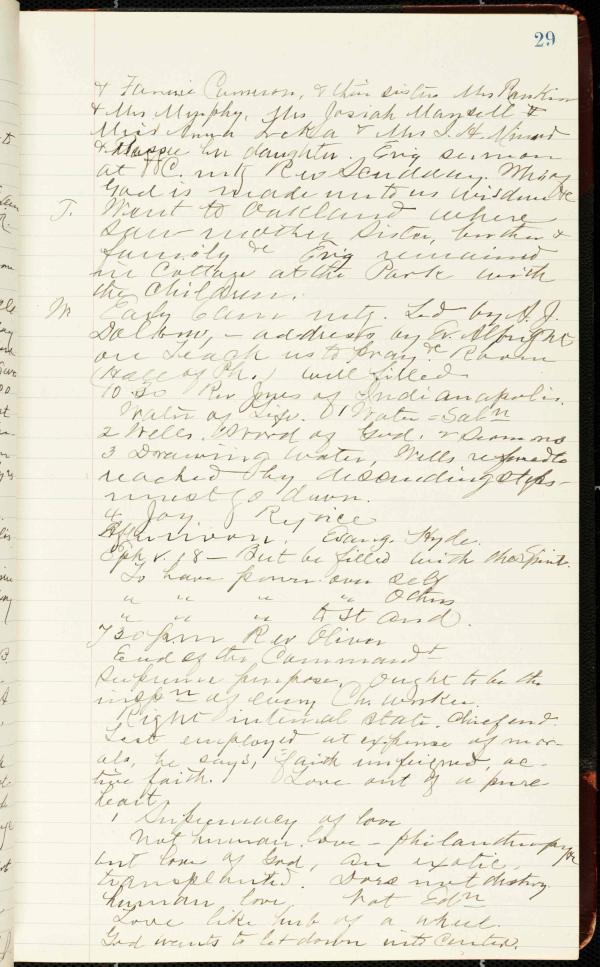 29
& Fannie Cameron, & their sister Mrs Rankin
& Mrs Murphy, Mrs Josiah Mansell &
Miss & Mrs J. H.
& Massie her daughter. Evig sermon
at P.C. mtg Rev Scudday. Who of
God is made unto us wisdom &c
T. Went to Oakland where
saw mother sister, brother &
family &c Evig remained
in Cottage at the Park with
the children.
M Early 6 am mtg. Led by A. J.
address by W. Albright
on Teach us to pray &c Room
(Hall of Ph.) well filled
10 30 Rev Jones of Indianapolis.
Water of Life. 1 Water = Salⁿ
2 Wells. Word of God. & Sermons
3 Drawing water, Wells referred to
reached by descending steps -
must go down.
4 Joy. Rejoice
Afternoon. Evang. Hyde.
Eph v. 18 - But be filled with the Spirit.
To have power over Self
" " " " Others
" " " to St and.
7 30 pm Rev Oliver
End of the Commandᵗ
Supreme purpose. Ought to be the
inspⁿ of every Chn worker.
Right internal state. Chief end
Lest employed at expense of mor-
als, he says, faith unfeigned, ac-
tive faith. Love out of a pure
heart.
1 Supremacy of love
Not human love - philanthropy &c
but love of God, an exotic,
transplanted. Does not destroy
human love Not Edⁿ
Love like hub of a wheel.
God wants to let down into center.